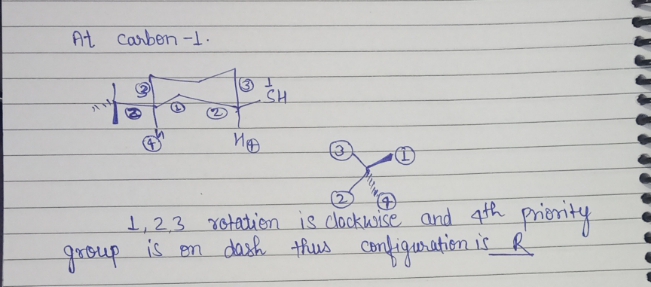 At carbon-1.
③ ③ 1
SH
② ① ②
④ H H④
③ ①
② ④
1, 2, 3 rotation is clockwise and 4th priority
group is on dash thus configuration is R